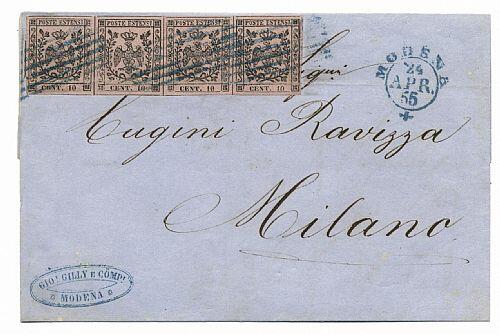 POSTE ESTENSI POSTE ESTENSI POSTE ESTENSI POSTE ESTENSI
CENT. 10 CENT. 10 CENT. 10 CENT. 10
MODENA
24
APR.
55
Ravizza
Milano
GIO! GILLY E COMP!
MODENA